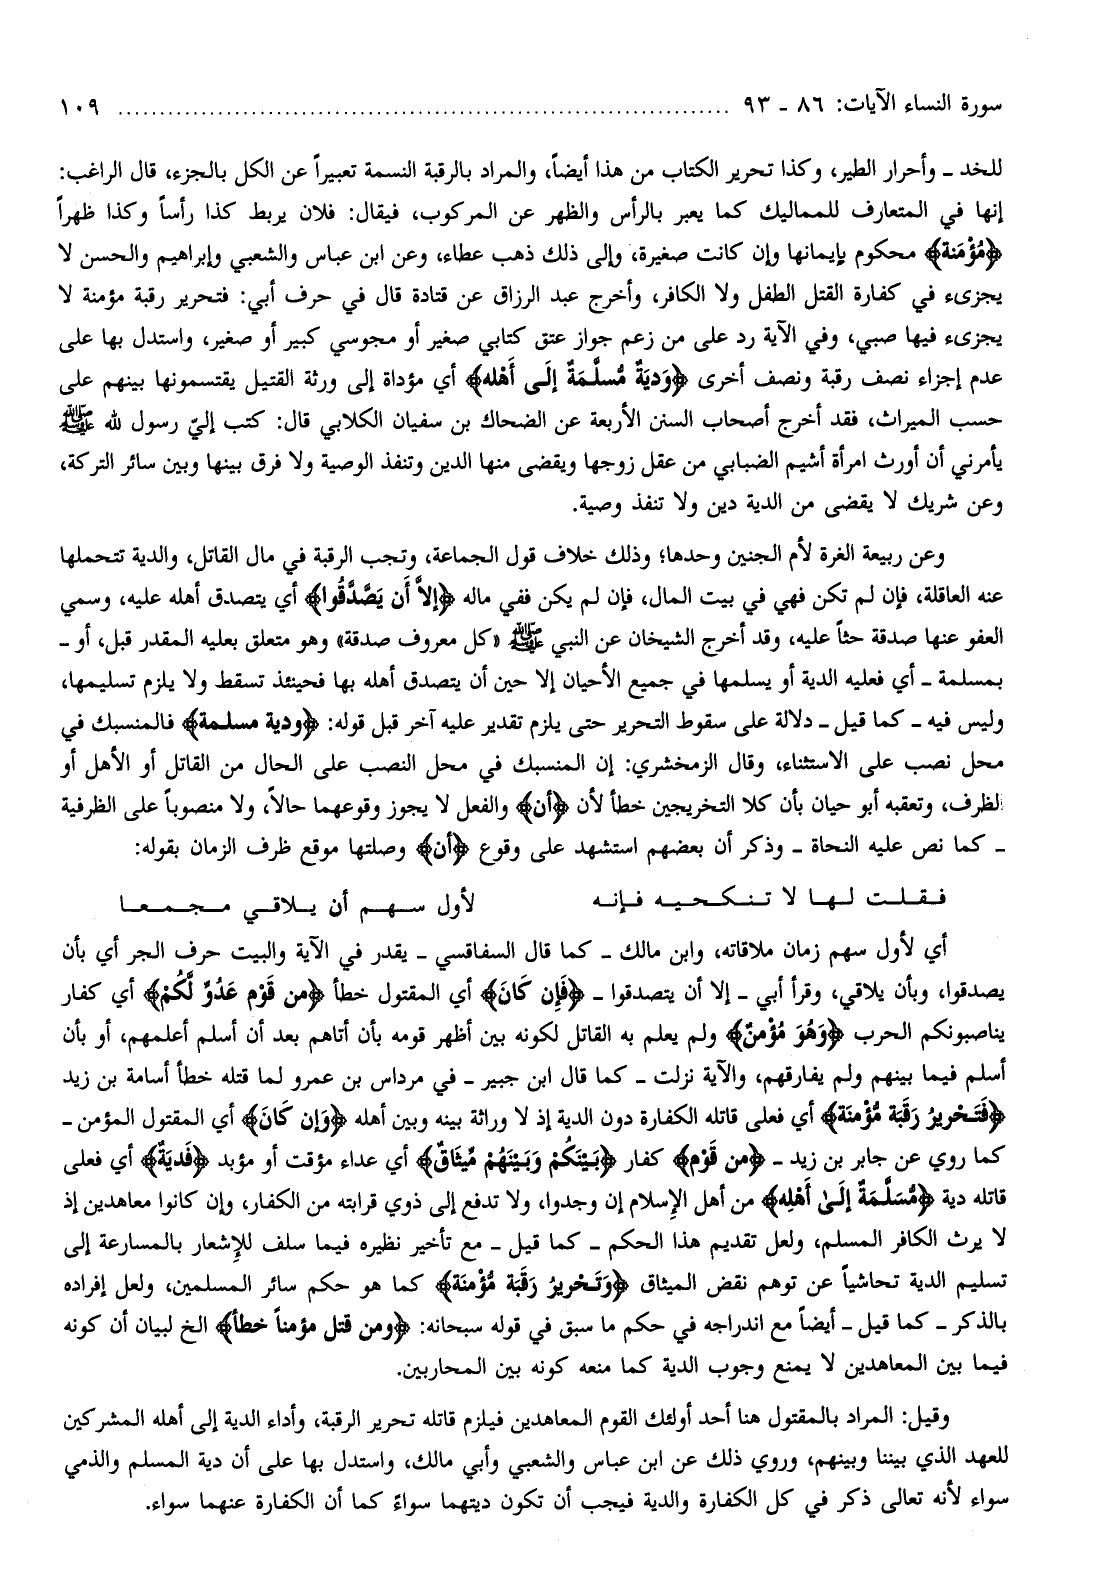 سورة النساء الآيات: ٨٦ ـ ٩٣ ........................................................................ ١٠٩
للخد ـ وأحرار الطير، وكذا تحرير الكتاب من هذا أيضاً، والمراد بالرقبة النسمة تعبيراً عن الكل بالجزء، قال الراغب:
إنها في المتعارف للمماليك كما يعبر بالرأس والظهر عن المركوب، فيقال: فلان يربط كذا رأساً وكذا ظهراً
﴿مُؤْمَنة﴾ محكوم بإيمانها وإن كانت صغيرة، وإلى ذلك ذهب عطاء، وعن ابن عباس والشعبي وإبراهيم والحسن لا
يجزىء في كفارة القتل الطفل ولا الكافر، وأخرج عبد الرزاق عن قتادة قال في حرف أبي: فتحرير رقبة مؤمنة لا
يجزىء فيها صبي، وفي الآية رد على من زعم جواز عتق كتابي صغير أو مجوسي كبير أو صغير، واستدل بها على
عدم إجزاء نصف رقبة ونصف أخرى ﴿وَديَةٌ مُسلَّمَةٌ إلَى أَهْله﴾ أي مؤداة إلى ورثة القتيل يقتسمونها بينهم على
حسب الميراث، فقد أخرج أصحاب السنن الأربعة عن الضحاك بن سفيان الكلابي قال: كتب إليّ رسول لله ﷺ
يأمرني أن أورث امرأة أشيم الضبابي من عقل زوجها ويقضى منها الدين وتنفذ الوصية ولا فرق بينها وبين سائر التركة،
وعن شريك لا يقضى من الدية دين ولا تنفذ وصية.
وعن ربيعة الغرة لأم الجنين وحدها؛ وذلك خلاف قول الجماعة، وتجب الرقبة في مال القاتل، والدية تتحملها
عنه العاقلة، فإن لم تكن فهي في بيت المال، فإن لم يكن ففي ماله ﴿إلاَّ أَن يَصَّدَّقُوا﴾ أي يتصدق أهله عليه، وسمي
العفو عنها صدقة حثاً عليه، وقد أخرج الشيخان عن النبي ﷺ «كل معروف صدقة» وهو متعلق بعليه المقدر قبل، أو ـ
بمسلمة ـ أي فعليه الدية أو يسلمها في جميع الأحيان إلا حين أن يتصدق أهله بها فحينئذ تسقط ولا يلزم تسليمها،
وليس فيه ـ كما قيل ـ دلالة على سقوط التحرير حتى يلزم تقدير عليه آخر قبل قوله: ﴿ودية مسلمة﴾ فالمنسبك في
محل نصب على الاستثناء، وقال الزمخشري: إن المنسبك في محل النصب على الحال من القاتل أو الأهل أو
الظرف، وتعقبه أبو حيان بأن كلا التخريجين خطأ لأن ﴿أن﴾ والفعل لا يجوز وقوعهما حالاً، ولا منصوباً على الظرفية
ـ كما نص عليه النحاة ـ وذكر أن بعضهم استشهد على وقوع ﴿أن﴾ وصلتها موقع ظرف الزمان بقوله:
فـقـلـت لـهـا لا تـنـكـحـيـه فـإنـه لأول سـهـم أن يـلاقـي مـجـمـعـا
أي لأول سهم زمان ملاقاته، وابن مالك ـ كما قال السفاقسي ـ يقدر في الآية والبيت حرف الجر أي بأن
يصدقوا، وبأن يلاقي، وقرأ أبي ـ إلا أن يتصدقوا ـ ﴿فَإِن كَانَ﴾ أي المقتول خطأ ﴿من قَوْم عَدُوّ لَّكُمْ﴾ أي كفار
يناصبونكم الحرب ﴿وَهُوَ مُؤْمنٌ﴾ ولم يعلم به القاتل لكونه بين أظهر قومه بأن أتاهم بعد أن أسلم أعلمهم، أو بأن
أسلم فيما بينهم ولم يفارقهم، والآية نزلت ـ كما قال ابن جبير ـ في مرداس بن عمرو لما قتله خطأ أسامة بن زيد
﴿فَتَحْريرُ رَقَبَة مُّؤْمنَة﴾ أي فعلى قاتله الكفارة دون الدية إذ لا وراثة بينه وبين أهله ﴿وَإن كَانَ﴾ أي المقتول المؤمن ـ
كما روي عن جابر بن زيد ـ ﴿من قَوْم﴾ كفار ﴿بَيْنَكُمْ وَبَيْنَهُمْ مِّيثَاقٌ﴾ أي عداء مؤقت أو مؤبد ﴿فَديَةٌ﴾ أي فعلى
قاتله دية ﴿مُّسَلَّمَةٌ إلَىٰ أَهْلِه﴾ من أهل الإسلام إن وجدوا، ولا تدفع إلى ذوي قرابته من الكفار، وإن كانوا معاهدين إذ
لا يرث الكافر المسلم، ولعل تقديم هذا الحكم ـ كما قيل ـ مع تأخير نظيره فيما سلف للإشعار بالمسارعة إلى
تسليم الدية تحاشياً عن توهم نقض الميثاق ﴿وَتَحْريرُ رَقَبَة مُّؤْمنَة﴾ كما هو حكم سائر المسلمين، ولعل إفراده
بالذكر ـ كما قيل ـ أيضاً مع اندراجه في حكم ما سبق في قوله سبحانه: ﴿ومن قتل مؤمناً خطأ﴾ الخ لبيان أن كونه
فيما بين المعاهدين لا يمنع وجوب الدية كما منعه كونه بين المحاربين.
وقيل: المراد بالمقتول هنا أحد أولئك القوم المعاهدين فيلزم قاتله تحرير الرقبة، وأداء الدية إلى أهله المشركين
للعهد الذي بيننا وبينهم، وروي ذلك عن ابن عباس والشعبي وأبي مالك، واستدل بها على أن دية المسلم والذمي
سواء لأنه تعالى ذكر في كل الكفارة والدية فيجب أن تكون ديتهما سواءً كما أن الكفارة عنهما سواء.